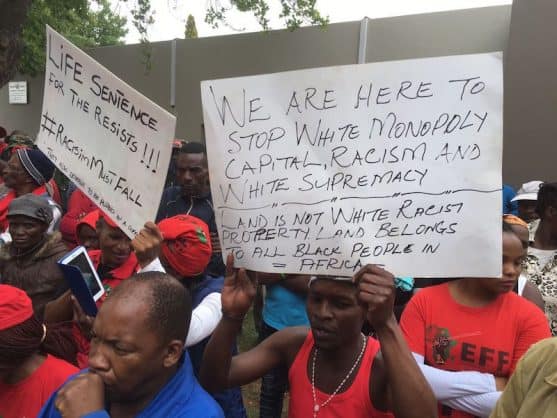 LIFE SENTENCE
FOR THE RESISTS!!!
#RACISIM MUST FALL
WE ARE HERE TO
STOP WHITE MONOPOLY
CAPITAL, RACISM AND
WHITE SUPREMACY
LAND IS NOT WHITE RACIST
PROPERTY LAND BELONGS
TO ALL BLACK PEOPLE IN
= AFRICA =
EFF